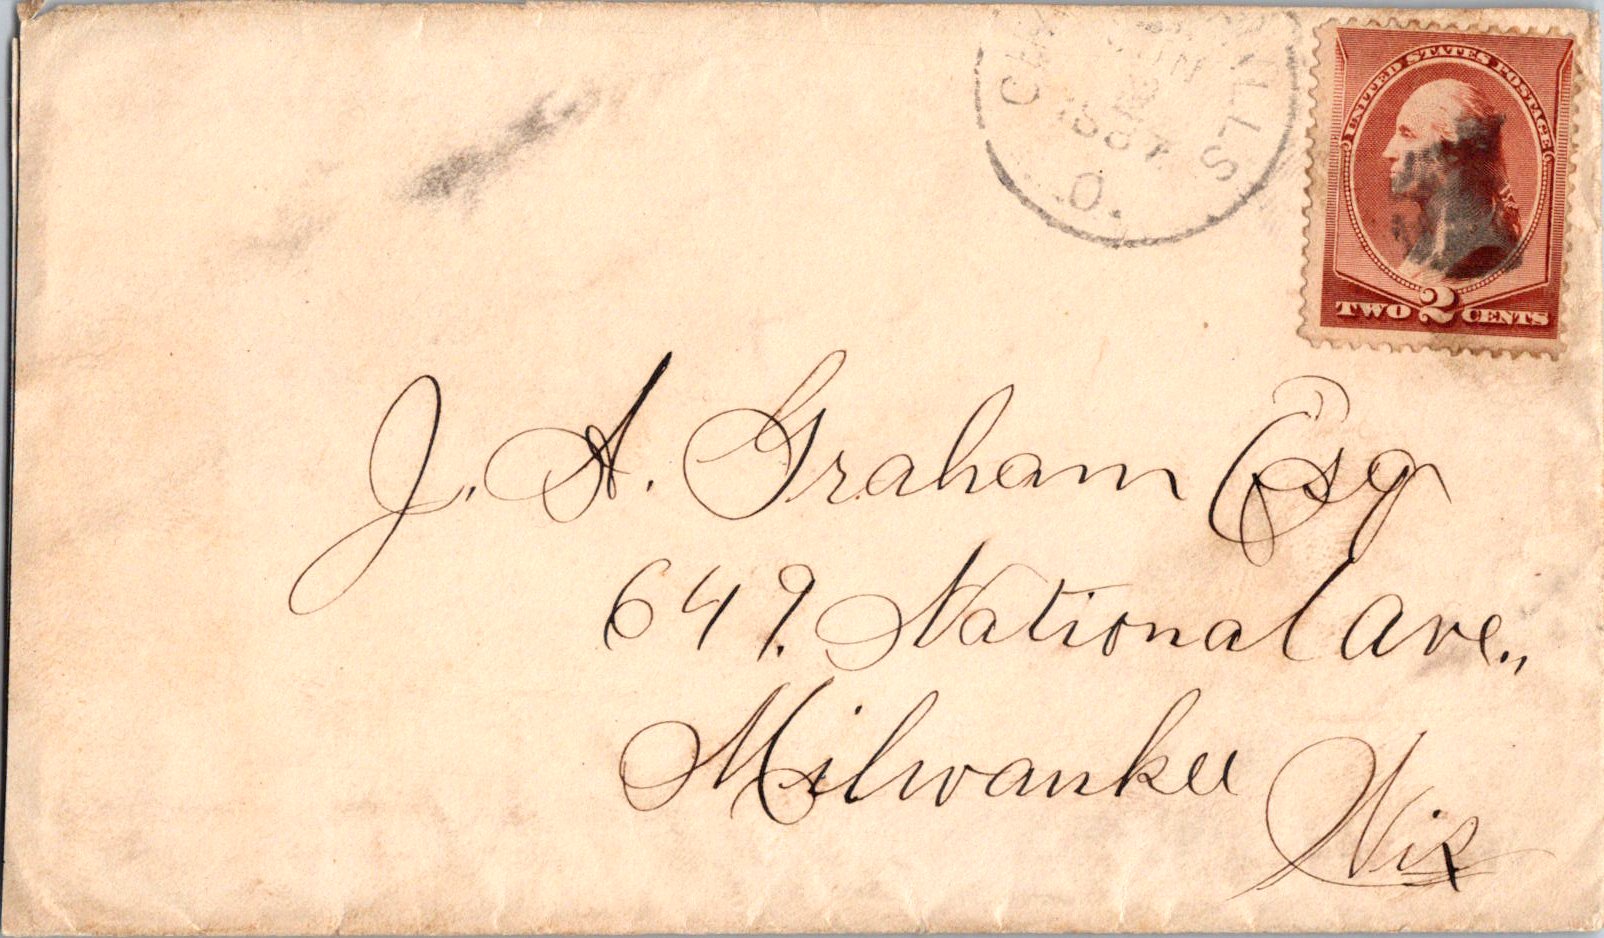 JUN
1887
O.
UNITED STATES POSTAGE
TWO 2 CENTS
J. A. Graham Esq
649. National Ave.,
Milwaukee
Wis